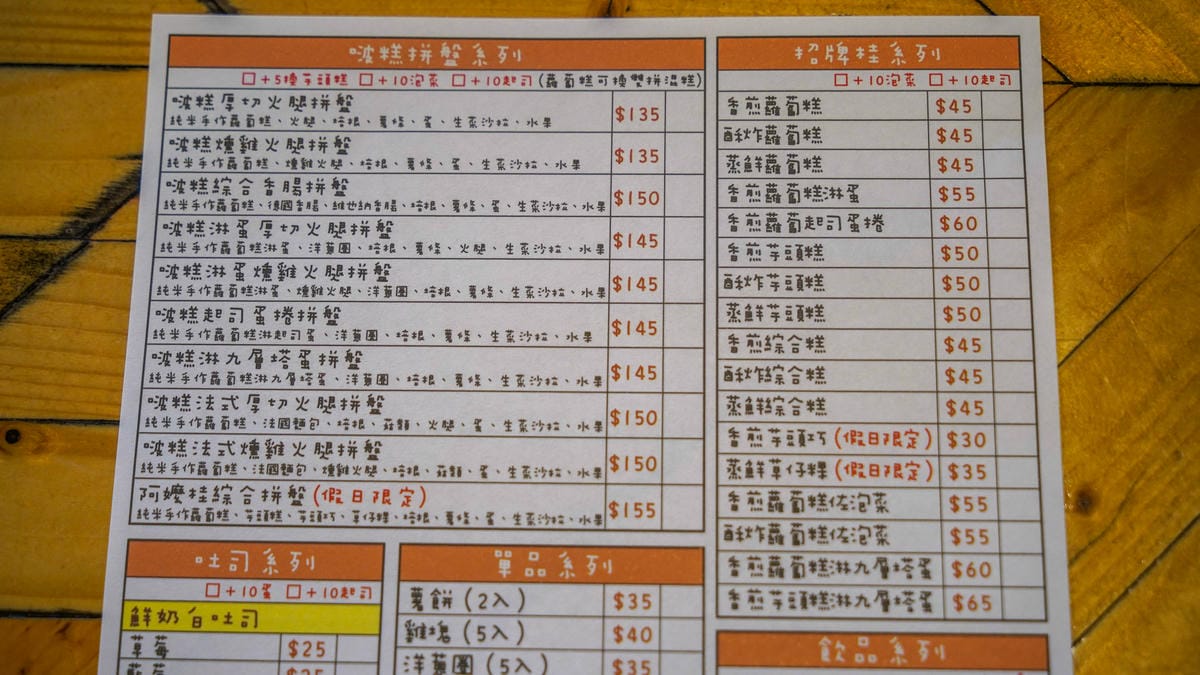 啵糕拼盤系列
□+5換芋頭糕 □+10泡菜 □+10起司(蘿蔔糕可換雙拼混糕)
啵糕厚切火腿拼盤 $135
純米手作蘿蔔糕、火腿、培根、薯條、蛋、生菜沙拉、水果
啵糕燻雞火腿拼盤 $135
純米手作蘿蔔糕、燻雞火腿、培根、薯條、蛋、生菜沙拉、水果
啵糕綜合香腸拼盤 $150
純米手作蘿蔔糕、德國香腸、維也納香腸、培根、薯條、蛋、生菜沙拉、水果
啵糕淋蛋厚切火腿拼盤 $145
純米手作蘿蔔糕淋蛋、洋蔥圈、培根、薯條、火腿、生菜沙拉、水果
啵糕淋蛋燻雞火腿拼盤 $145
純米手作蘿蔔糕淋蛋、燻雞火腿、洋蔥圈、培根、薯條、生菜沙拉、水果
啵糕起司蛋捲拼盤 $145
純米手作蘿蔔糕淋起司蛋、洋蔥圈、培根、薯條、生菜沙拉、水果
啵糕淋九層塔蛋拼盤 $145
純米手作蘿蔔糕淋九層塔蛋、洋蔥圈、培根、薯條、生菜沙拉、水果
啵糕法式厚切火腿拼盤 $150
純米手作蘿蔔糕、法國麵包、培根、菇類、火腿、蛋、生菜沙拉、水果
啵糕法式燻雞火腿拼盤 $150
純米手作蘿蔔糕、法國麵包、燻雞火腿、培根、菇類、蛋、生菜沙拉、水果
阿嬤桂綜合拼盤(假日限定) $155
純米手作蘿蔔糕、芋頭糕、芋頭巧、草仔粿、培根、薯條、蛋、生菜沙拉、水果
招牌桂系列
□+10泡菜 □+10起司
香煎蘿蔔糕 $45
酥炸蘿蔔糕 $45
蒸鮮蘿蔔糕 $45
香煎蘿蔔糕淋蛋 $55
香煎蘿蔔起司蛋捲 $60
香煎芋頭糕 $50
酥炸芋頭糕 $50
蒸鮮芋頭糕 $50
香煎綜合糕 $45
酥炸綜合糕 $45
蒸鮮綜合糕 $45
香煎芋頭巧(假日限定) $30
蒸鮮草仔粿(假日限定) $35
香煎蘿蔔糕佐泡菜 $55
酥炸蘿蔔糕佐泡菜 $55
香煎蘿蔔糕淋九層塔蛋 $60
香煎芋頭糕淋九層塔蛋 $65
吐司系列
□+10蛋 □+10起司
鮮奶白吐司
草莓 $25
單品系列
薯餅(2入) $35
雞塊(5入) $40
洋蔥圈(5入) $35
飲品系列